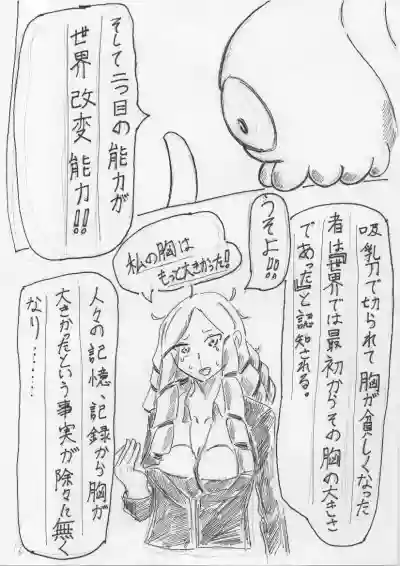 そして二つ目の能力が
世界改変能力!!
吸乳刀で切られて胸が貧しくなった
者は『世界では最初からその胸の大きさ
であった』と認知される。
うそよ!!
私の胸は
もっと大きかった!
人々の記憶、記録から胸が
大きかったという事実が除々に無く
なり………